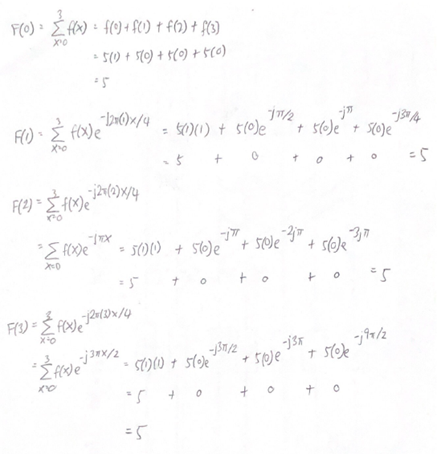 F(0) = Σ_{x=0}^{3} f(x) = f(0) + f(1) + f(2) + f(3)
= 5(1) + 5(0) + 5(0) + 5(0)
= 5
F(1) = Σ_{x=0}^{3} f(x) e^{-j2π(1)x/4} = 5(1)(1) + 5(0)e^{-jπ/2} + 5(0)e^{-jπ} + 5(0)e^{-j3π/4}
= 5 + 0 + 0 + 0 = 5
F(2) = Σ_{x=0}^{3} f(x) e^{-j2π(2)x/4}
= Σ_{x=0} f(x) e^{-jπx} = 5(1)(1) + 5(0)e^{-jπ} + 5(0)e^{-2jπ} + 5(0)e^{-3jπ}
= 5 + 0 + 0 + 0 = 5
F(3) = Σ_{x=0}^{3} f(x) e^{-j2π(3)x/4}
= Σ_{x=0}^{3} f(x) e^{-j3πx/2} = 5(1)(1) + 5(0)e^{-j3π/2} + 5(0)e^{-j3π} + 5(0)e^{-j9π/2}
= 5 + 0 + 0 + 0
= 5